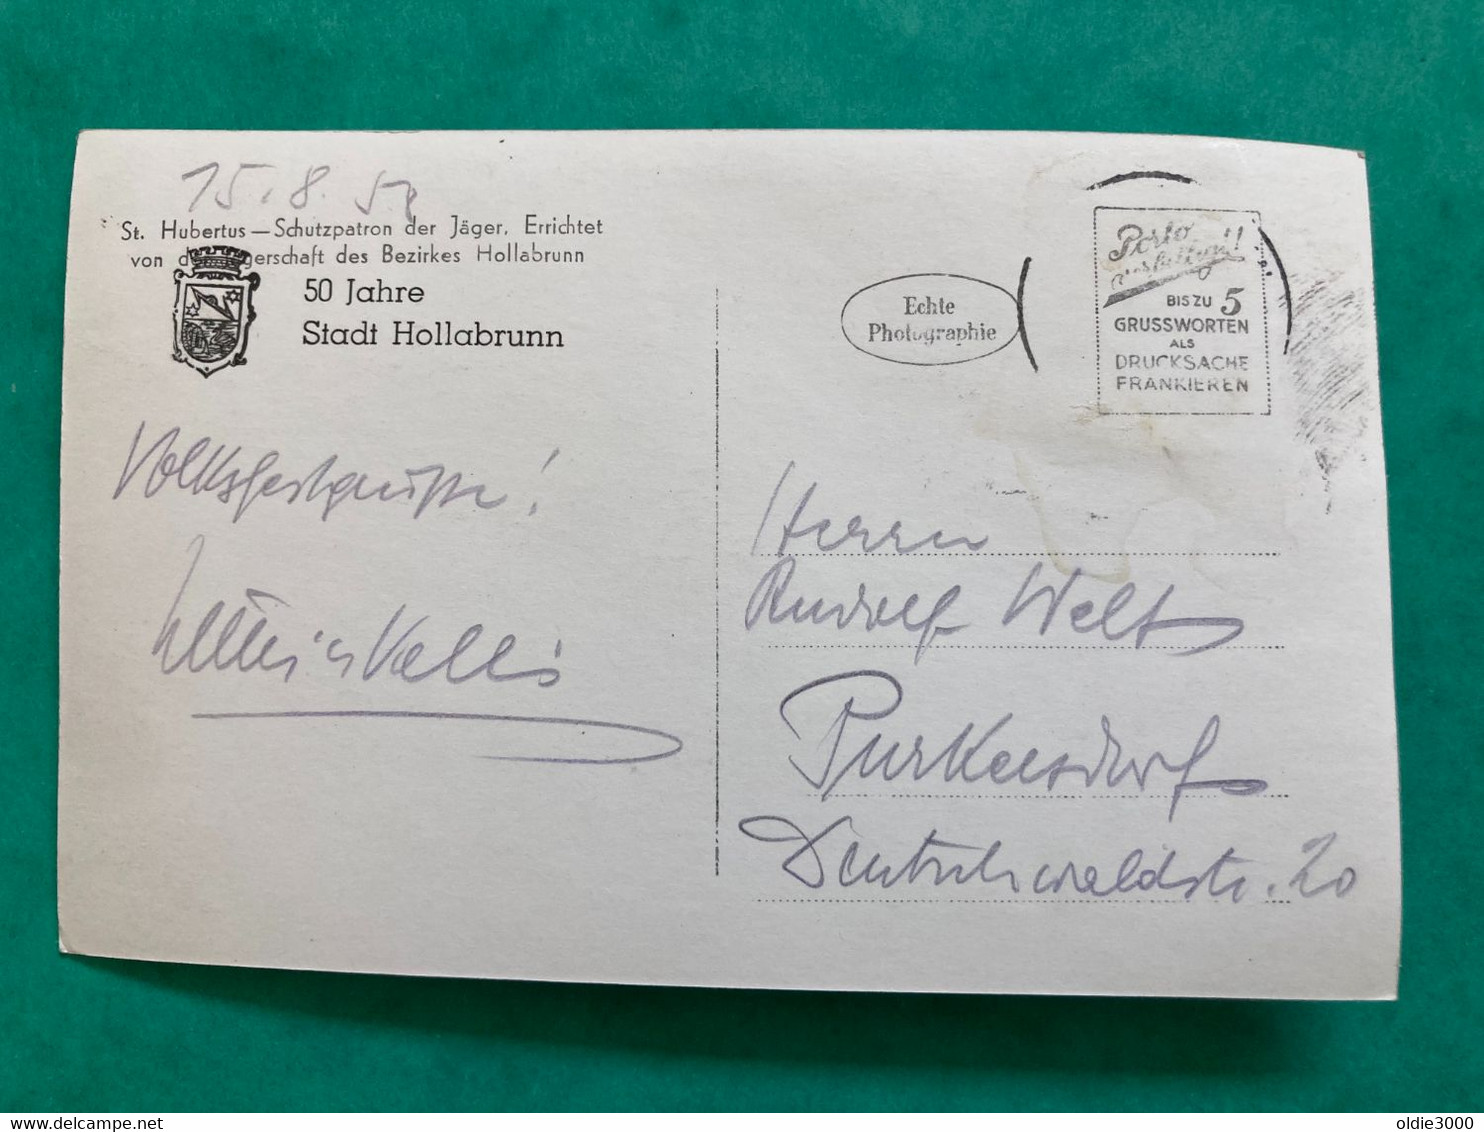 15.8.58
St. Hubertus — Schutzpatron der Jäger, Errichtet
von der Jägerschaft des Bezirkes Hollabrunn
50 Jahre
Stadt Hollabrunn
Volksfestgrüsse!
Echte
Photographie
Porto
BIS ZU 5
GRUSSWORTEN
ALS
DRUCKSACHE
FRANKIEREN
Herrn
Rudolf Welt
Purkersdorf
Deutschwaldstr. 20
oldie3000